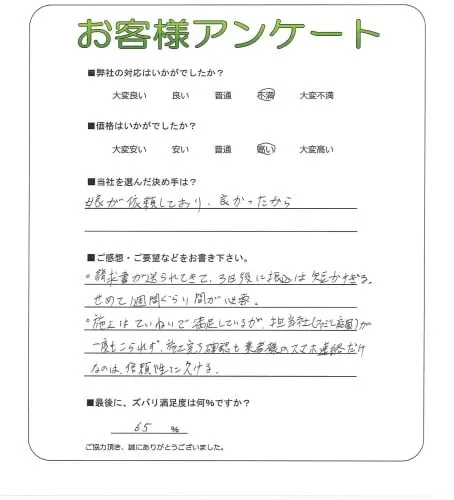 お客様アンケート
■弊社の対応はいかがでしたか?
大変良い 良い 普通 不満 大変不満
■価格はいかがでしたか?
大変安い 安い 普通 高い 大変高い
■当社を選んだ決め手は?
娘が依頼しており、良かったから
■ご感想・ご要望などをお書き下さい。
。請求書が送られてきて、3日後に振込は短かすぎる。
せめて1週間ぐらい間が必要。
。施工はていねいで満足しているが、担当社(みどし庭園)が
一度もこられず、施工完了確認も業者様のスマホ連絡だけ
なのは、信頼性に欠ける。
■最後に、ズバリ満足度は何%ですか?
65 %
ご協力頂き、誠にありがとうございました。